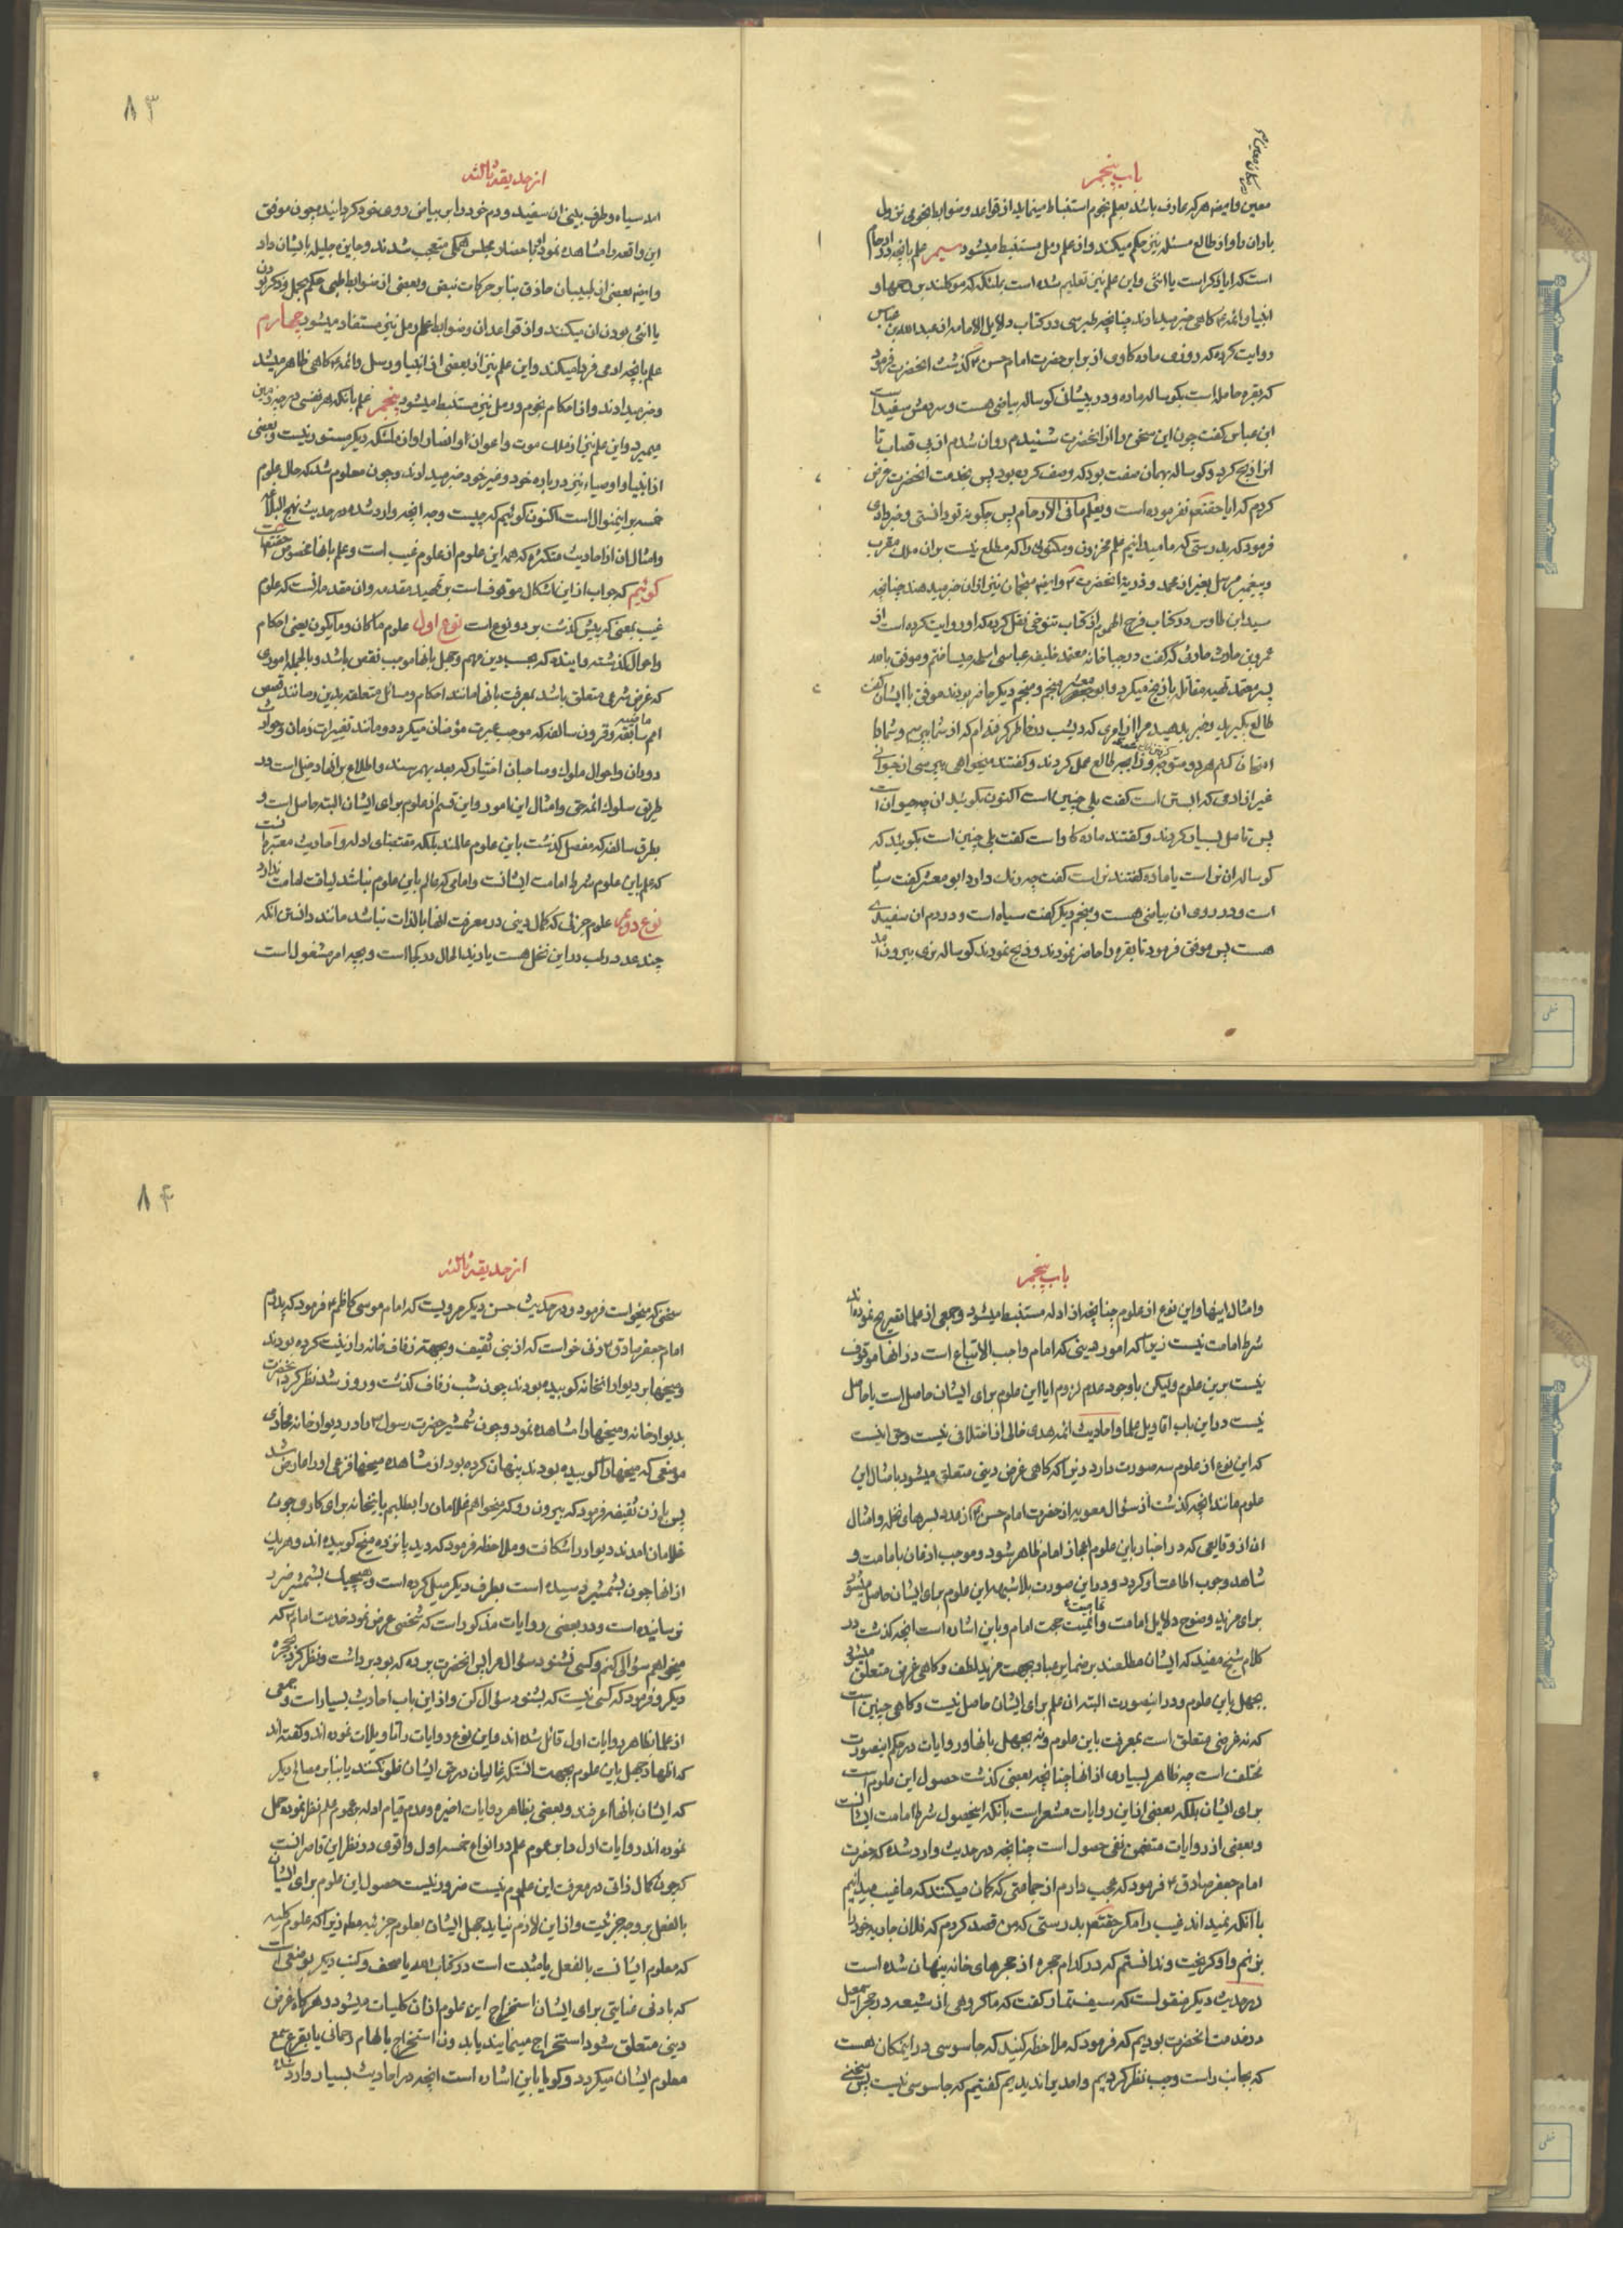 باب پنجم
معین و ایضه هر که عارف باشد بعلم نجوم استنباط مینماید از قواعد و ضوابط نجومی نزول
باران را و از طالع مسئله نیز حکم میکنند و از علم رمل مستنبط میشود سیم علم بانچه در ارحام
است که ایا ذکر است یا انثی و این علم نیز تعلیم شده است بملئکه که موکلند برحمها و
انبیا و ائمه ع کاهی خبر میدادند چنانچه طبرسی در کتاب دلایل الامامه از عبدالله بن عباس
روایت کرده که روزی ماده کاوی از برابر حضرت امام حسن ع کذشت انحضرت فرمود
که بقره حامله است بکوساله ماده و در پیشانی کوساله بیاضی هست و سر دمش سفید است
ابن عباس کفت چون این سخن را از انحضرت شنیدم روان شدم از پی قصاب تا
انرا ذبح کرد و کوساله بهمان صفت بود که وصف کرده بود پس بخدمت انحضرت عرض
کردم که ایا حقتعم نفرموده است و یعلم مافی الارحام پس چکونه تو دانستی و خبر دادی
فرمود که بدرستی که ما میدانیم علم مخزون و مکنونی را که مطلع نیست بران ملك مقرب
و پیغمبر مرسل بغیر از محمد و ذریه انحضرت ع و ایضه منجمان نیز ازان خبر میدهند چنانچه
سید ابن طاوس در کتاب فرج المهموم از کتاب تنوخی نقل کرده که او روایت کرده است از
عمرو بن حارث حارثی که کفت در جبا خانه معتمد خلیفه عباسی اسلحه میساختم و موفق بالله
پسر معتمد تهیه مقاتله با زنج میکرد و ابو معشر منجم و منجم دیکر حاضر بودند موفق با ایشان کفت
طالع بکیرید و خبر بدهید مرا از امری که دیشب در خاطر کرفته ام که از شما بپرسم و شما را
امتحان کنم هر دو متوجه زایجه طالع عمل کردند و کفتند میخواهی بپرسی از حیوانی
غیر ادمی که ابستن است کفت بلی چنین است اکنون بکوئید ان چه حیوان است
پس تامل بسیار کردند و کفتند ماده کاو است کفت بلی چنین است بکوئید که
کوساله ان نر است یا ماده کفتند نر است کفت چه رنك دارد ابو معشر کفت سیاه
است و در روی ان بیاضی هست و منجم دیکر کفت سیاه است و در دم ان سفیدی
هست پس موفق فرمود تا بقره را حاضر نمودند و ذبح نمودند کوساله نری بیرون امد
۸۳
از حدیقه ثالثه
امد سیاه و طرف بینی ان سفید و دم خود را بر بیاض روی خود کردانیده چون موفق
این واقعه را مشاهده نمود با حضار مجلس همکی متعجب شدند و جایزه جلیله بایشان داد
و ایضه بعضی از طبیبان حاذق بنابر حرکات نبض و بعضی از ضوابط طبی حکم بحمل و ذکر بودن
یا انثی بودن ان میکنند و از قواعد ان و ضوابط علم رمل نیز مستفاد میشود چهارم
علم بانچه ادمی فردا میکند و این علم نیز از بعضی از انبیا و رسل و ائمه ع کاهی ظاهر میشد
و خبر میدادند و از احکام نجوم و رمل نیز مستنبط میشود پنجم علم بانکه هر نفسی در چه زمین
میمیرد و این علم نیز از ملك موت و اعوان او و انصار او از ملئکه دیکر مستور نیست و بعضی
از انبیا و اوصیاء نیز در باره خود و غیر خود خبر میدادند و چون معلوم شد که حال علوم
خمسه بر اینمنوال است اکنون کوئیم که چیست وجه انچه وارد شده در حدیث نهج البلاغه
و امثال ان از احادیث متکثره که همه این علوم از علوم غیب است و علم بانها مخصوص حقتعم است
کوئیم که جواب از این اشکال موقوفست بر تمهید مقدمه و ان مقدمه انست که علوم
غیب بمعنی که پیش کذشت بر دو نوع است نوع اول علوم ماکان و مایکون یعنی احکام
و احوال کذشته و اینده که بحسب دین مهم و جهل بانها موجب نقص باشد و بالجمله اموری
که غرض شرعی متعلق باشد بمعرفت بانها مانند احکام و مسائل متعلقه بدین و مانند قصص
امم سابقه ماضیه و قرون سالفه که موجب عبرت مؤمنان میکردد و مانند تغیرات زمان و حوادث
دوران و احوال ملوك و صاحبان اختیار که بعد بهم رسند و اطلاع بر انها دخیل است در
طریق سلوك ائمه حق و امثال این امور و این قسم از علوم برای ایشان البته حاصل است و
بطرق سالفه که مفصل کذشت باین علوم عالمند بلکه مقتضای ادله و احادیث معتبره انست
که علم باین علوم شرط امامت ایشانست و امامی که عالم باین علوم نباشد لیاقت امامت ندارد
نوع دوم علوم جزئی که کمال دینی در معرفت انها بالذات نباشد مانند دانستن انکه
چند عدد رطب در این نخل هست یا زید الحال در کجا است و بچه امر مشغول است
باب پنجم
و امثال اینها و این نوع از علوم چنانچه از ادله مستنبط میشود و جمعی از علما تصریح نموده اند
شرط امامت نیست زیرا که امور دینی که امام واجب الاتباع است در انها موقوف
نیست برین علوم ولیکن باوجود عدم لزوم ایا این علوم برای ایشان حاصل است یا حاصل
نیست در این باب اقاویل علما و احادیث ائمه هدی خالی از اختلافی نیست و حق اینست
که این نوع از علوم سه صورت دارد زیرا که کاهی غرض دینی متعلق میشود بامثال این
علوم مانند انچه کذشت از سؤال معویه از حضرت امام حسن ع از عدد بسرهای نخله و امثال
ان از وقایعی که در اخبار باین علوم اعجاز امام ظاهر شود و موجب اذعان بامامت و
شاهد وجوب اطاعت او کردد و در این صورت بلاشبهه این علوم برای ایشان حاصل میشود
برای مزید وضوح دلایل امامت و اتمیت حجت امام و باین اشاره است انچه کذشت در
کلام شیخ مفید که ایشان مطلعند بر ضمایر عباد بجهت مزید لطف و کاهی غرض متعلق میشود
بجهل باین علوم و در اینصورت البته ان علم برای ایشان حاصل نیست و کاهی چنین است
که نه غرضی متعلق است بمعرفت باین علوم و نه بجهل بانها و روایات در حکم اینصورت
مختلف است چه ظاهر بسیاری از انها چنانچه بعضی کذشت حصول این علوم است
برای ایشان بلکه بعضی از این روایات مشعر است بانکه اینحصول شرط امامت ایشانست
و بعضی از روایات متضمن نفی حصول است چنانچه در حدیث وارد شده که حضرت
امام جعفر صادق ع فرمود که عجب دارم از جماعتی که کمان میکنند که ما غیب میدانیم
با انکه نمیداند غیب را مکر حقتعم بدرستی که من قصد کردم که فلان جاریه خود را
بزنم و او کریخت و ندانستم که در کدام حجره از حجرهای خانه پنهان شده است
در حدیث دیکر منقولست که سیف تمار کفت که ما کروهی از شیعه در حجر اسمعیل
در خدمت انحضرت بودیم که فرمود که ملاحظه کنید که جاسوسی در اینمکان هست
که بجانب راست و چپ نظر کردیم و احدیرا ندیدیم کفتیم که جاسوسی نیست پس سخنی
۸۴
از حدیقه ثالثه
سخنی که میخواست فرمود و در حدیث حسن دیکر مرویست که امام موسی کاظم ع فرمود که پدرم
امام جعفر صادق ع زنی خواست که از بنی ثقیف و بجهته زفاف خانه را زینت کرده بودند
و میخها بر دیوار انخانه کوبیده بودند چون شب زفاف کذشت و روز شد نظر کرد انحضرت
بدیوار خانه و میخها را مشاهده نمود و چون شمشیر حضرت رسول ص را در دیوار خانه محاذی
موضعی که میخها را کوبیده بودند پنهان کرده بود از مشاهده میخها فزعی او را عارض شد
پس بان زن ثقیفه فرمود که بیرون رو که میخواهم غلامان را بطلبم باینخانه برای کاری چون
غلامان امدند دیوار را شکافت و ملاحظه فرمود که دید پانزده میخ کوبیده اند و هر یك
از انها چون بشمشیر رسیده است بطرف دیکر میل کرده است و هیچیك بشمشیر ضرر
نرسانیده است و در بعضی روایات مذکور است که شخصی عرض نمود خدمت امام ع که
میخواهم سؤالی کنم و کسی نشنود سؤال مرا پس انحضرت پرده که بود برداشت و نظر کرد بحجره
دیکر و فرمود که کسی نیست که بشنود سؤال کن و از این باب احادیث بسیار است و جمعی
از علما بظاهر روایات اول قائل شده اند و این نوع روایات را تاویلات نموده اند و کفته اند
که اظهار جهل باین علوم بجهت انستکه غالیان در حق ایشان غلو نکنند یا بنابر مصالح دیکر
که ایشان بانها اعرفند و بعضی بظاهر روایات اخیره و عدم قیام ادله بر عموم علم نظر نموده حمل
نموده اند روایات اول را بر عموم علم در انواع خمسه اول و اقوی در نظر این قاصر انست
که چون کمال ذاتی در معرفت این علوم نیست ضرور نیست حصول این علوم برای ایشان
بالفعل بر وجه جزئیت و از این لازم نیاید جهل ایشان بعلوم جزئیه مطم زیرا که علوم کلیه
که معلوم ایشانست بالفعل یا مثبت است در کتاب الله یا صحف و کتب دیکر بوضعی است
که بادنی عنایتی برای ایشان استخراج این علوم از ان کلیات میشود و هرکاه غرض
دینی متعلق شود استخراج مینمایند یا بدون استخراج بالهام رحمانی یا بقرع سمع
معلوم ایشان میکردد و کویا باین اشاره است انچه در احادیث بسیار وارد شده